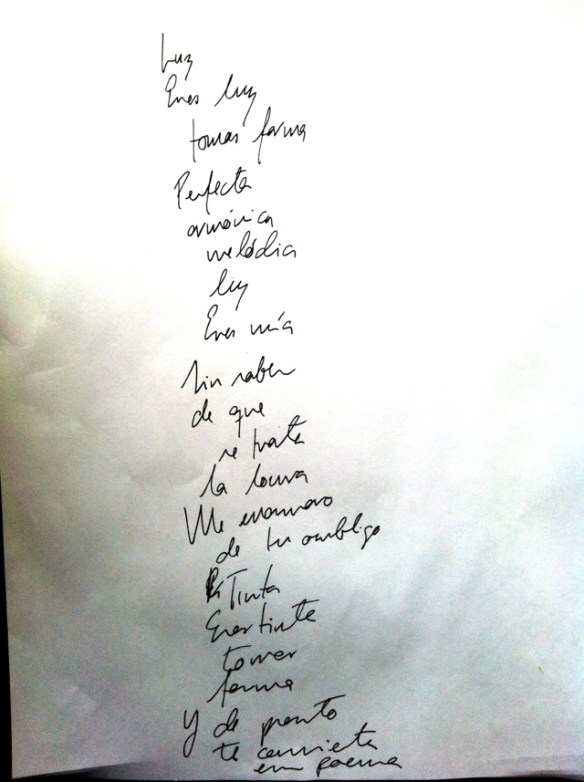 Luz
Eres luz
tomas forma
Perfecta
armónica
melódica
luz
Eres mía
sin saber
de que
se trata
la locura
Me enamoro
de tu ombligo
Tinta
Eres tinta
tomas
forma
Y de pronto
te convierte
en poema